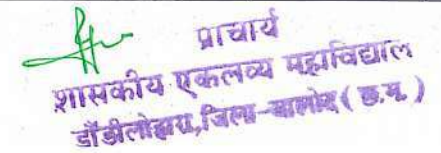 प्राचार्य
शासकीय एकलव्य महाविद्याल
डौंडीलोहारा,जिला-बालोद ( छ.ग. )